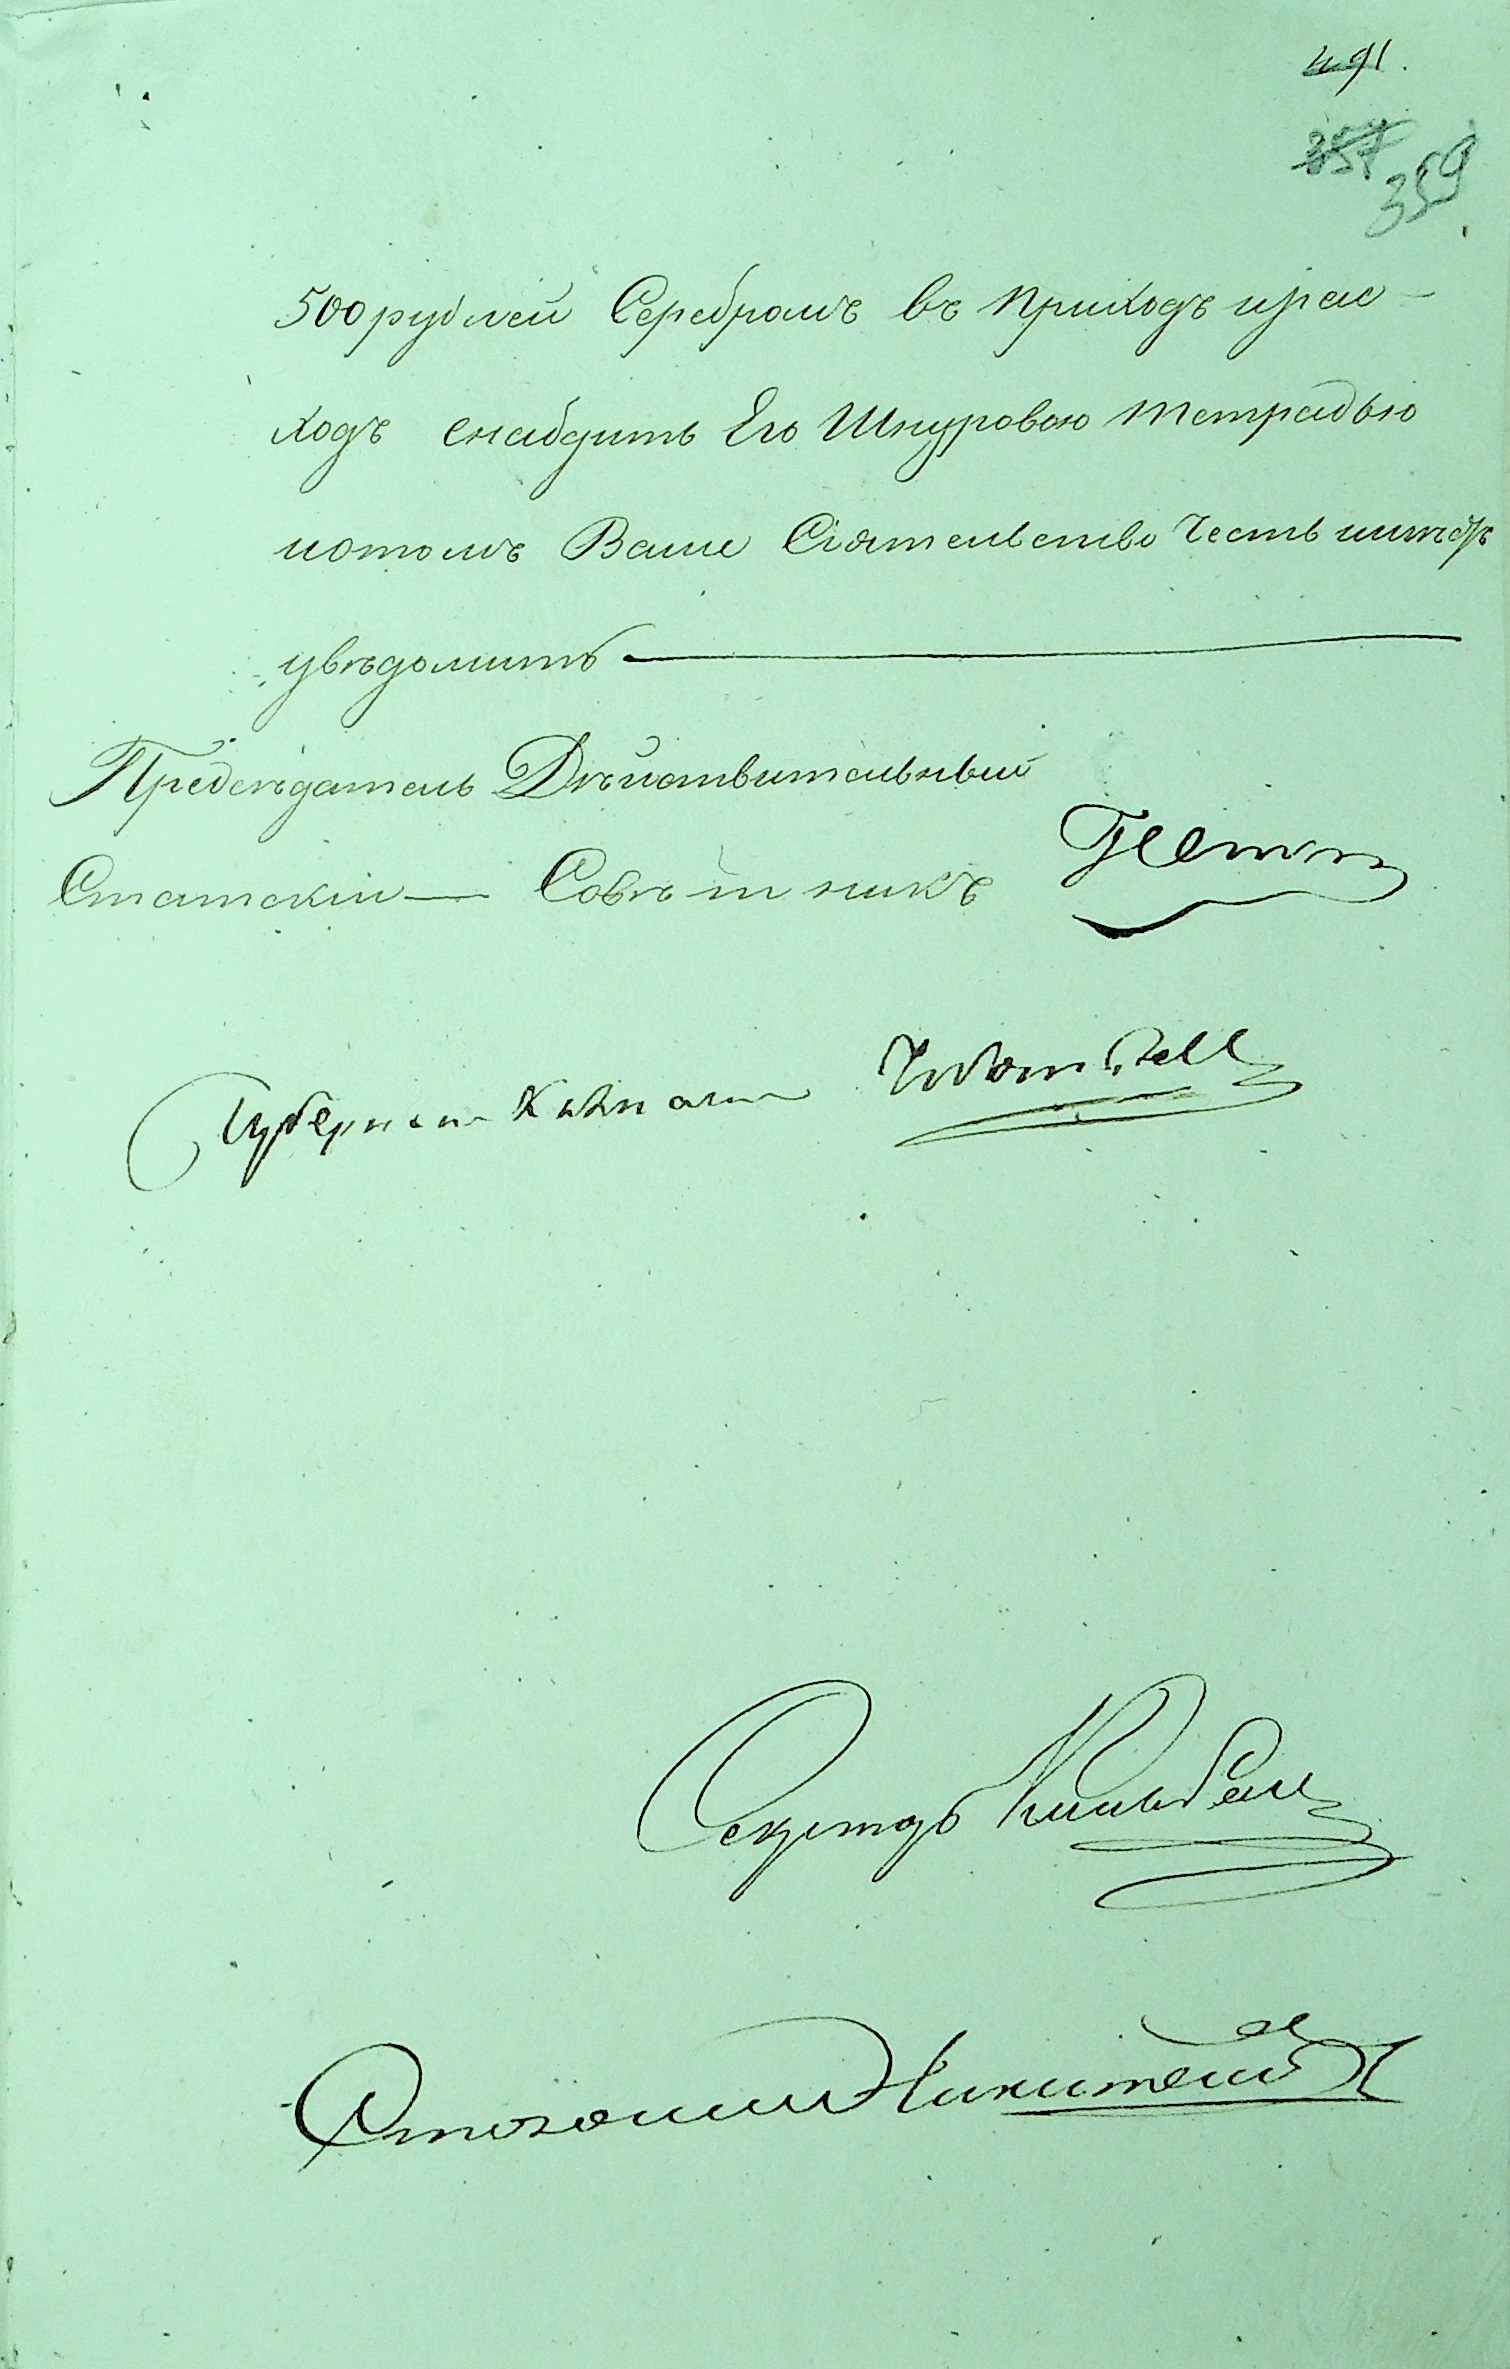 491.
357 359
500 рублей Серебромъ въ приходъ и рас-
ходъ снабдить Его Шнуровою тетрадью
и отомъ Ваше Сіятельство честь имѣетъ
увѣдомить
Предсѣдатель Дѣйствительный
Статскій Совѣтникъ
Губернскій Казначей
Секретарь